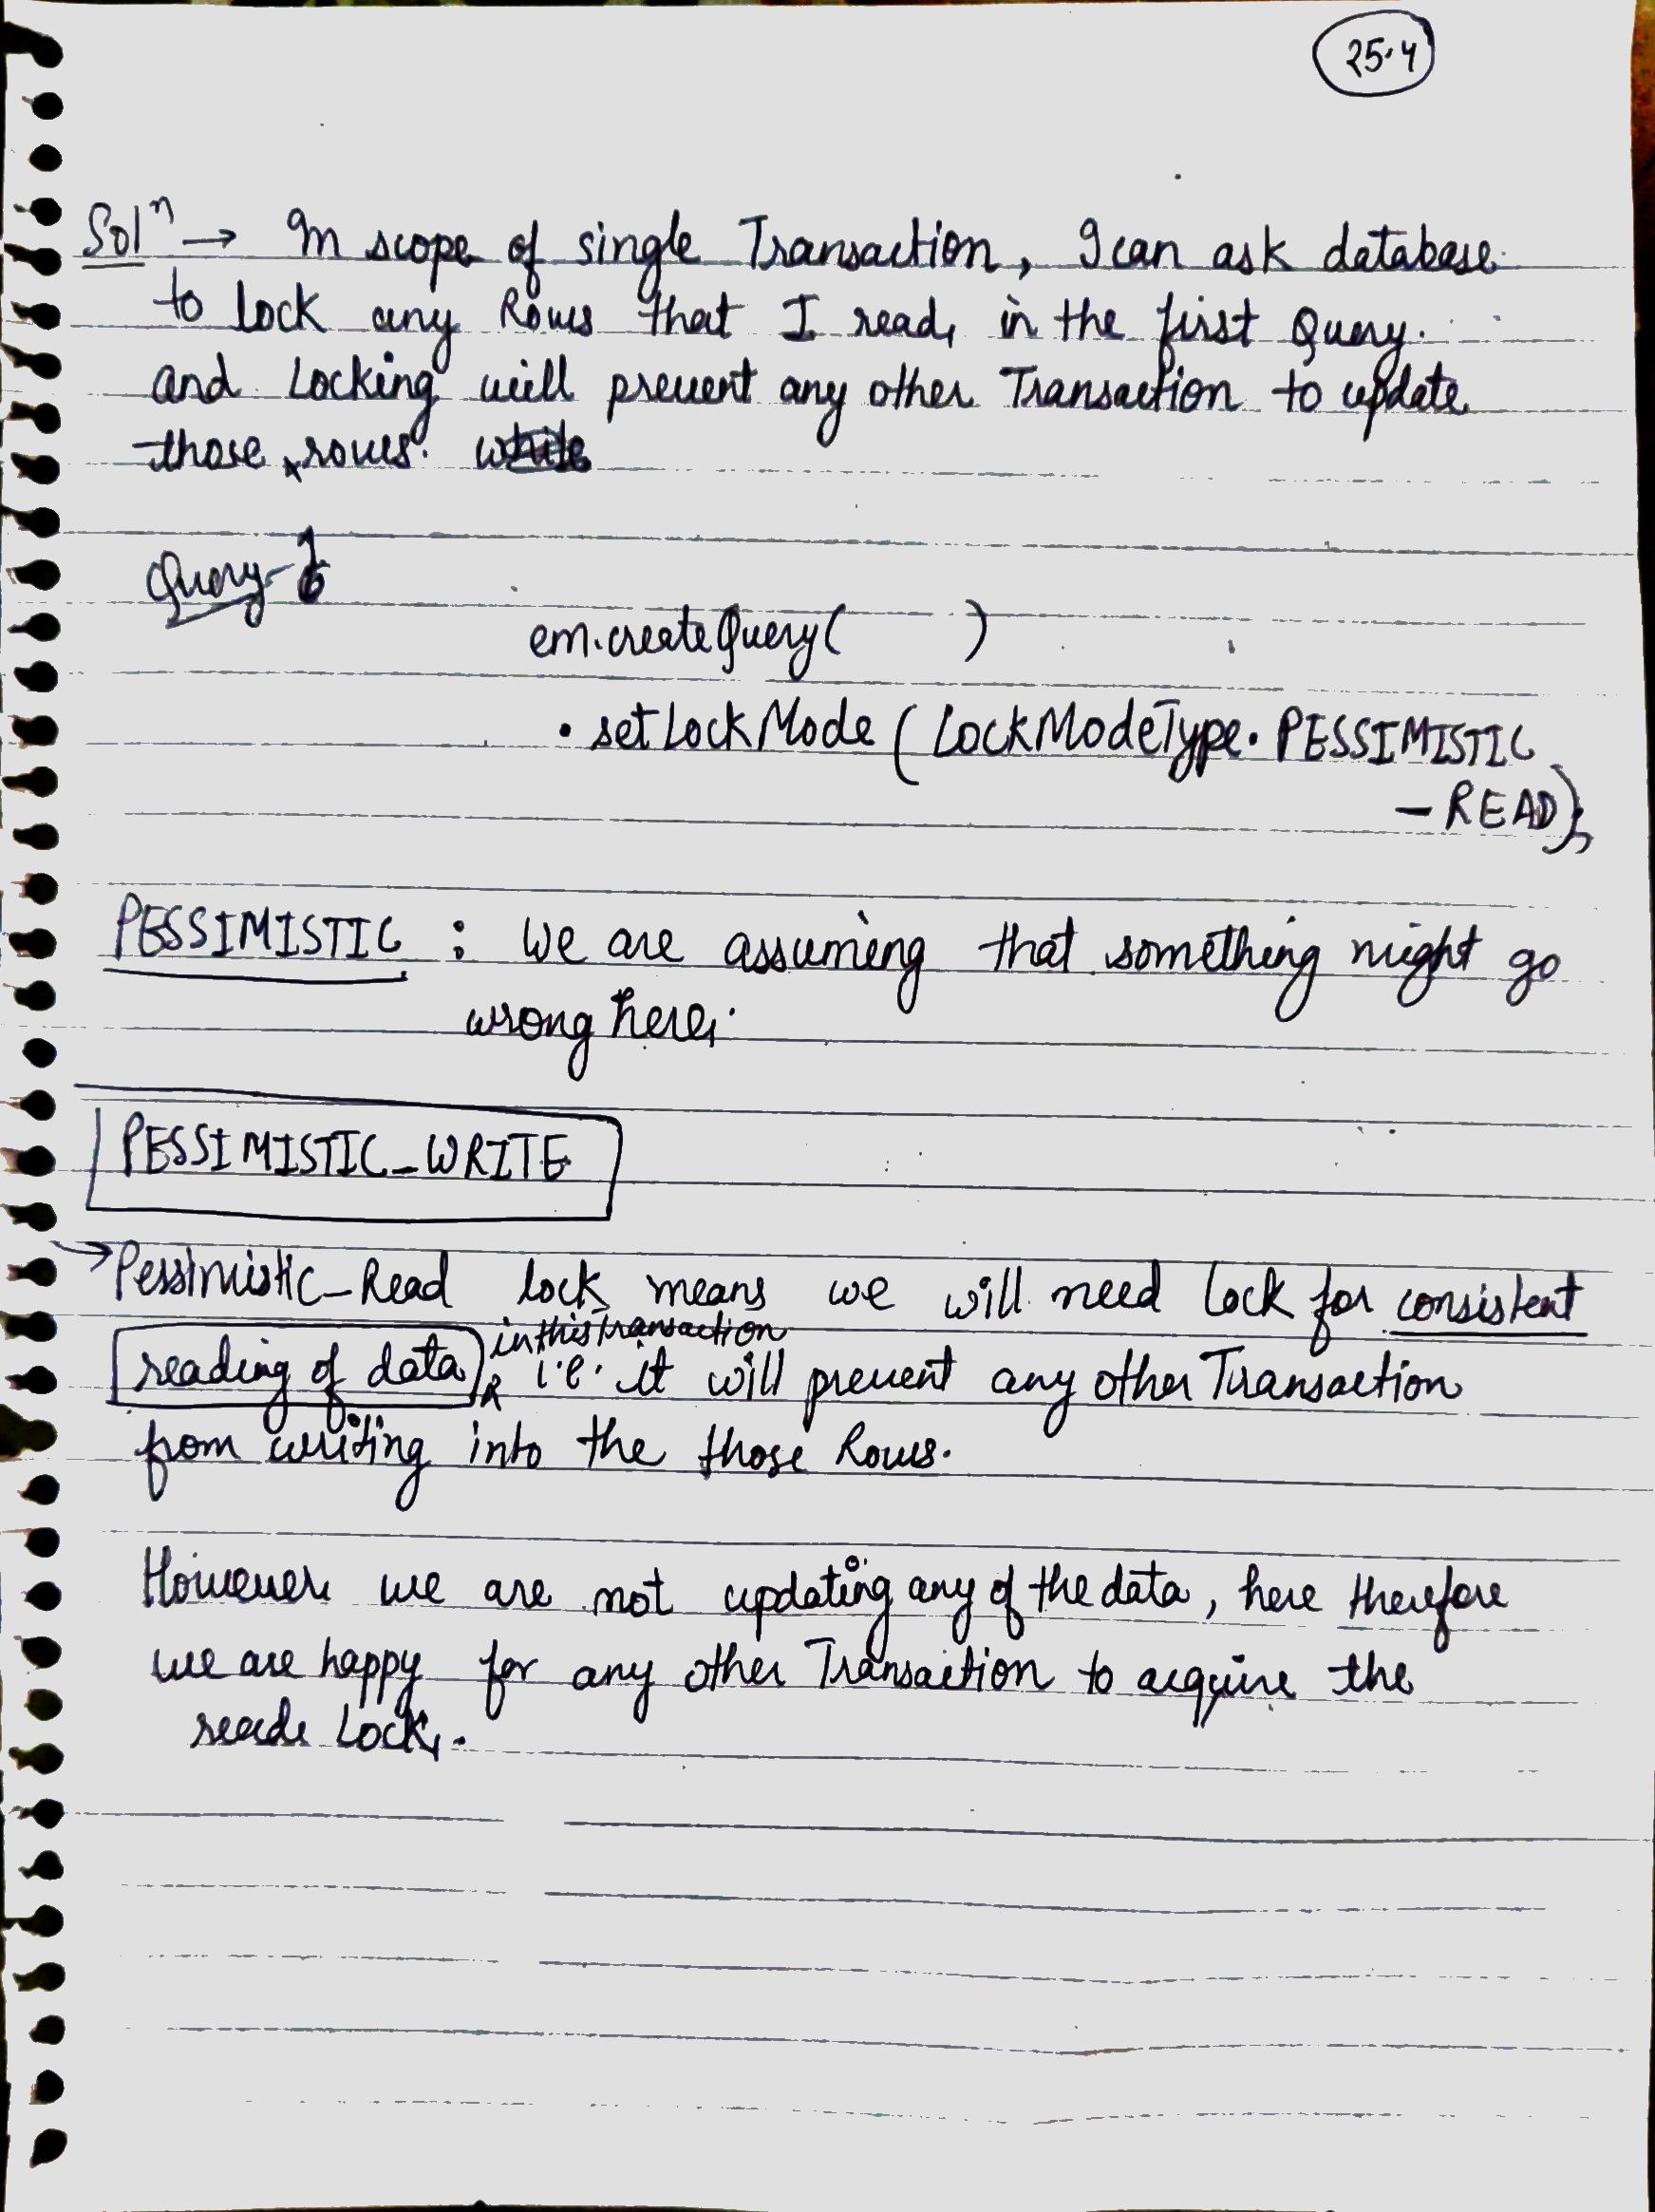 25.4
Solⁿ → In scope of single Transaction, I can ask database
to lock any Rows that I read, in the first Query.
and Locking will prevent any other Transaction to update
those rows. while
Query-1
em.createQuery( )
.setLockMode (LockModeType.PESSIMISTIC
_READ);
PESSIMISTIC : We are assuming that something might go
wrong here.
PESSIMISTIC_WRITE
→ Pessimistic_Read lock means we will need lock for consistent
in this transaction
reading of data, i.e. it will prevent any other Transaction
from writing into the those Rows.
However we are not updating any of the data, here therefore
we are happy for any other Transaction to acquire the
reade Lock.